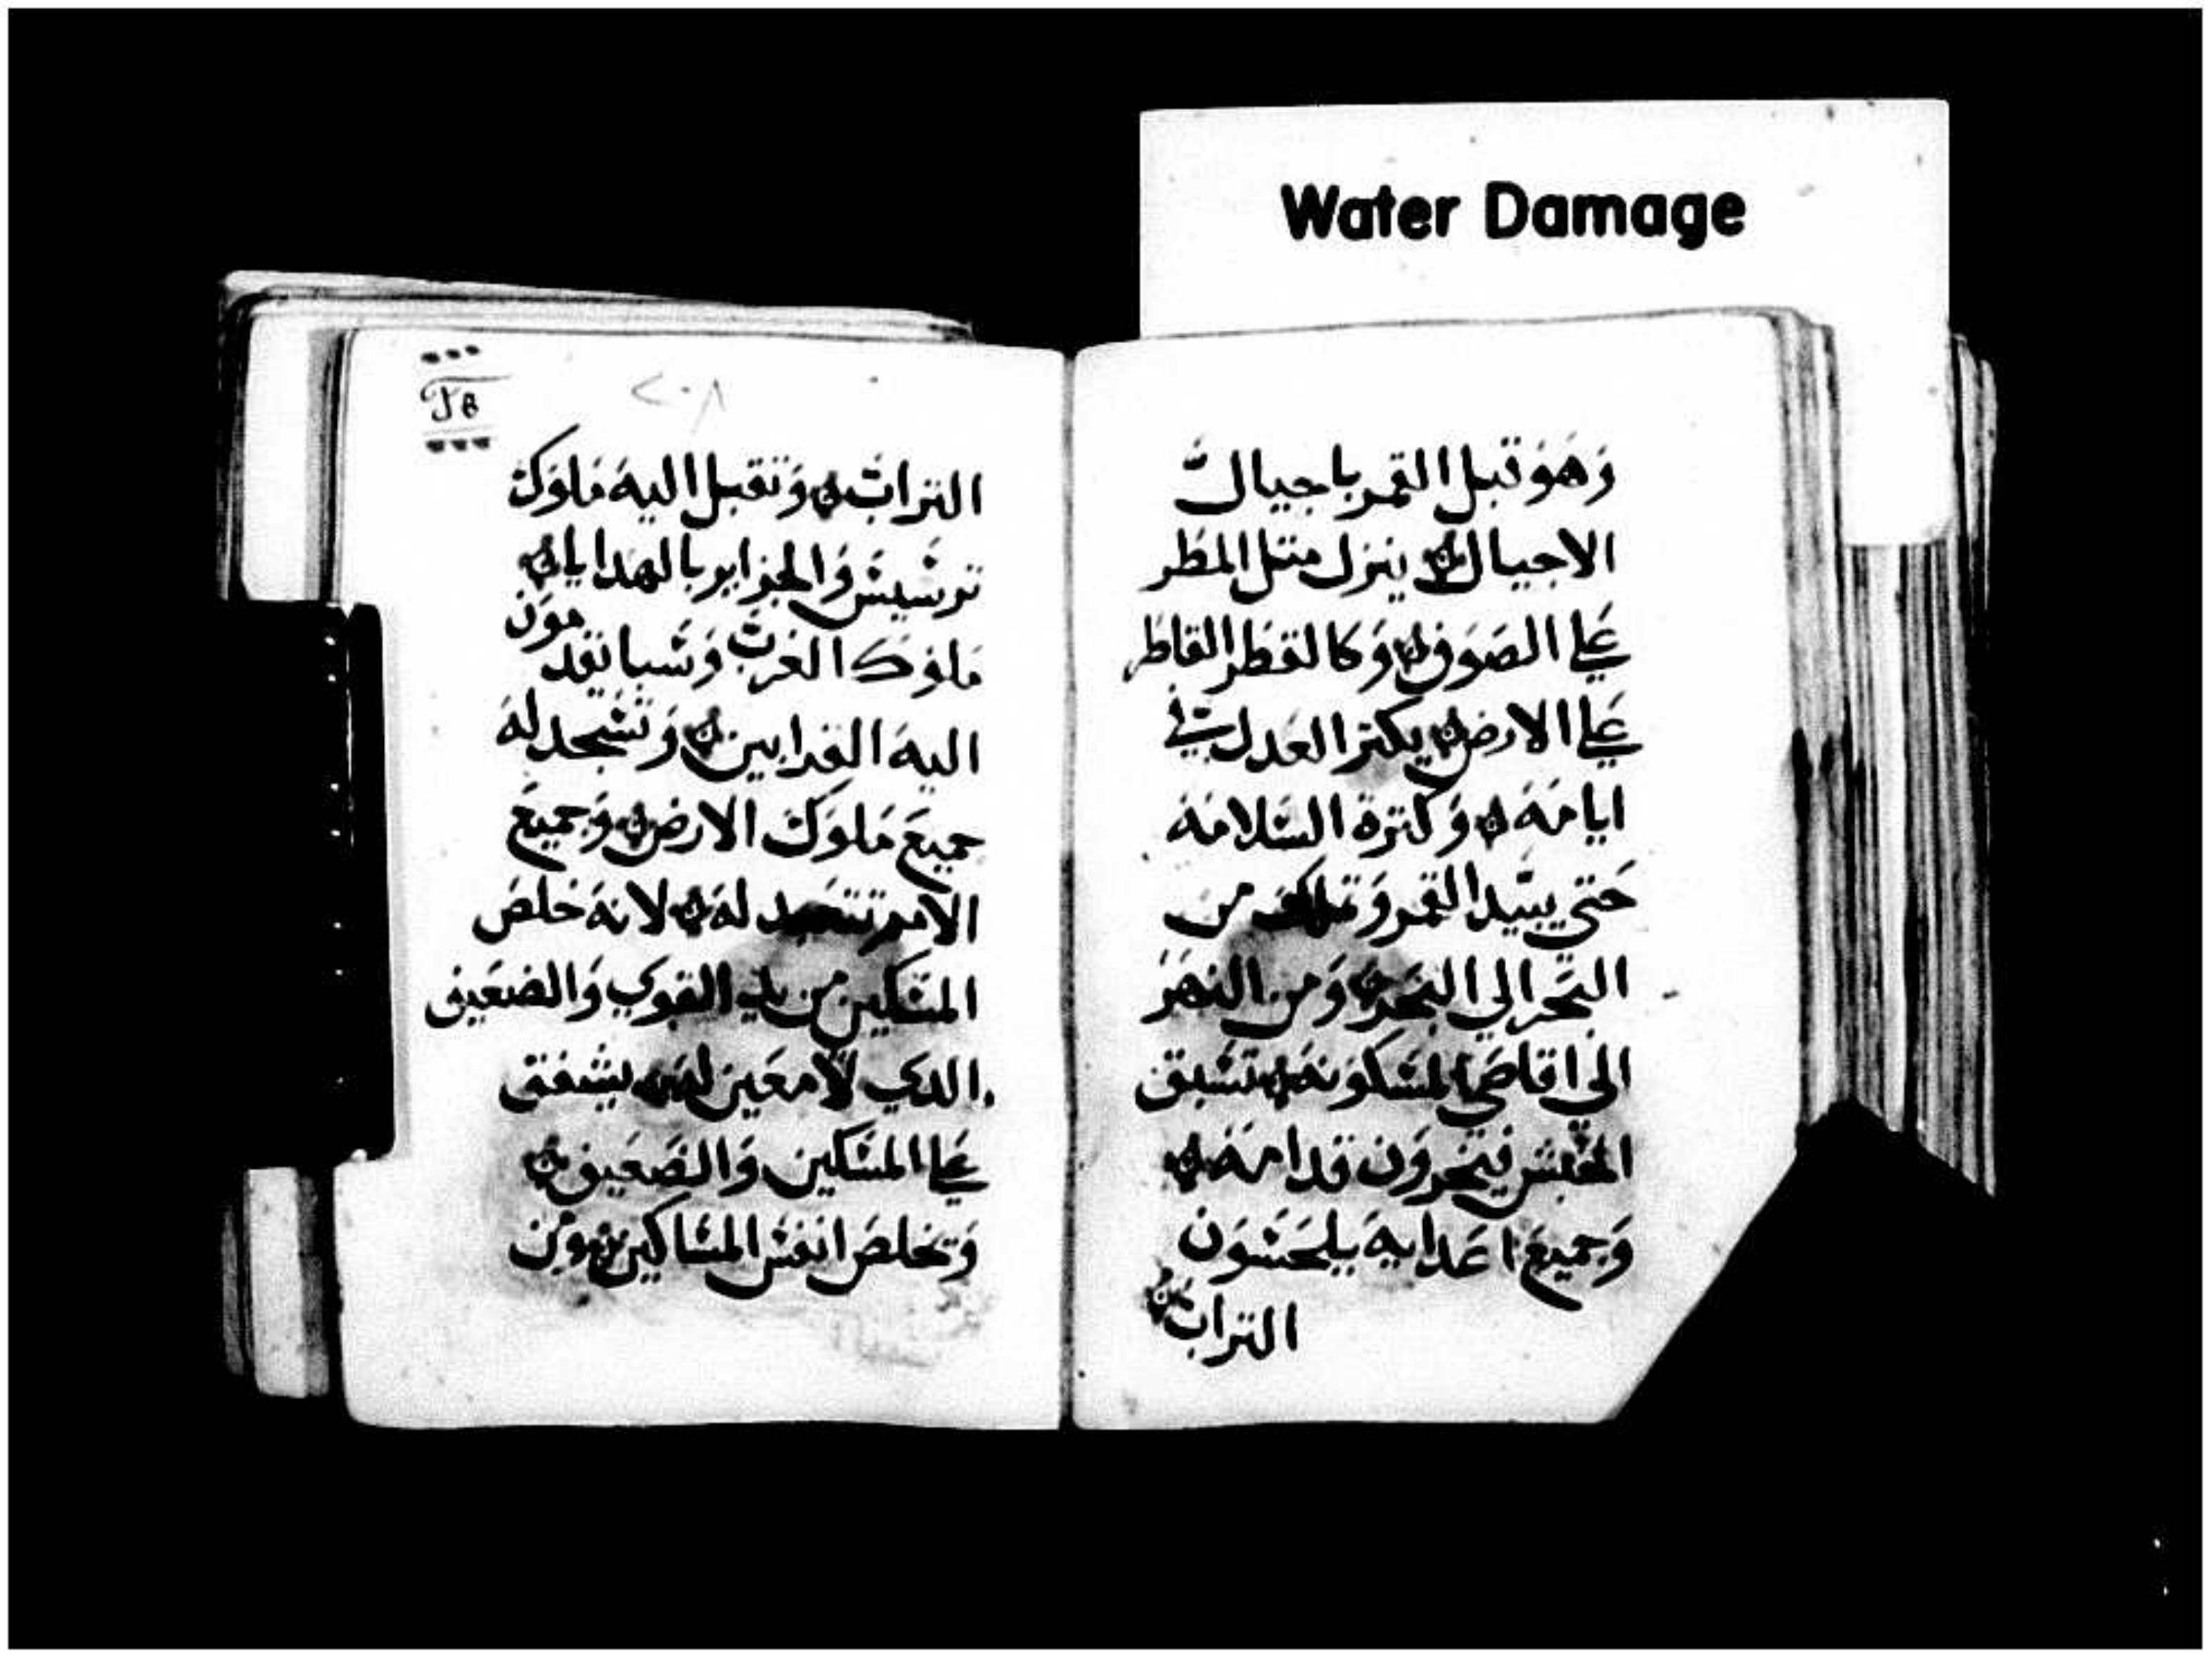 Water Damage
وَهَوَ قبل القمر باجيال
الاجيال ينزل متل المطر
علي الصَوَف وَكالقطر القاطر
علي الارض يكتر العدل في
ايامَهَ وَكترة السَلامَة
حَتي يبيد القمر وَتملك من
البَحر الي البَحر وَمن النهَر
الي اقاصَي المسَكونة تسَبق
الحَبش فيخرون قدامَهَ
وَجميع اعَدايهَ يلحَسَون
التراب
٢٠٨
الترابَ وَتقبل اليهَ مَلوَك
ترسَيسَ وَالجزاير بالهَدايا
مَلوَك العَربَ وَسَبا يقدموَن
اليهَ القرابين وَتسَجد لهَ
جميعَ مَلوَك الارض وَجميعَ
الامم تتعبد لهَ لانهَ خلصَ
المسَكين من يد القوي وَالضعَيف
الدي لامعَين لهَ يشفق
علي المسَكين وَالضعَيف
وَتخلصَ انفسَ المسَاكين ومن